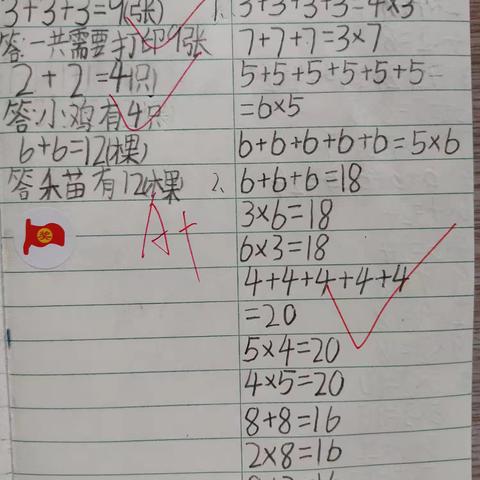 3+3+3=9(张)
答一共需要打印9张
2+2=4(只)
答小鸡有4只
6+6=12(棵)
答禾苗有12(棵)
A+
奖
1、3+3+3+3=4×3
7+7+7=3×7
5+5+5+5+5+5
=6×5
6+6+6+6+6=5×6
2、6+6+6=18
3×6=18
6×3=18
4+4+4+4+4
=20
5×4=20
4×5=20
8+8=16
2×8=16